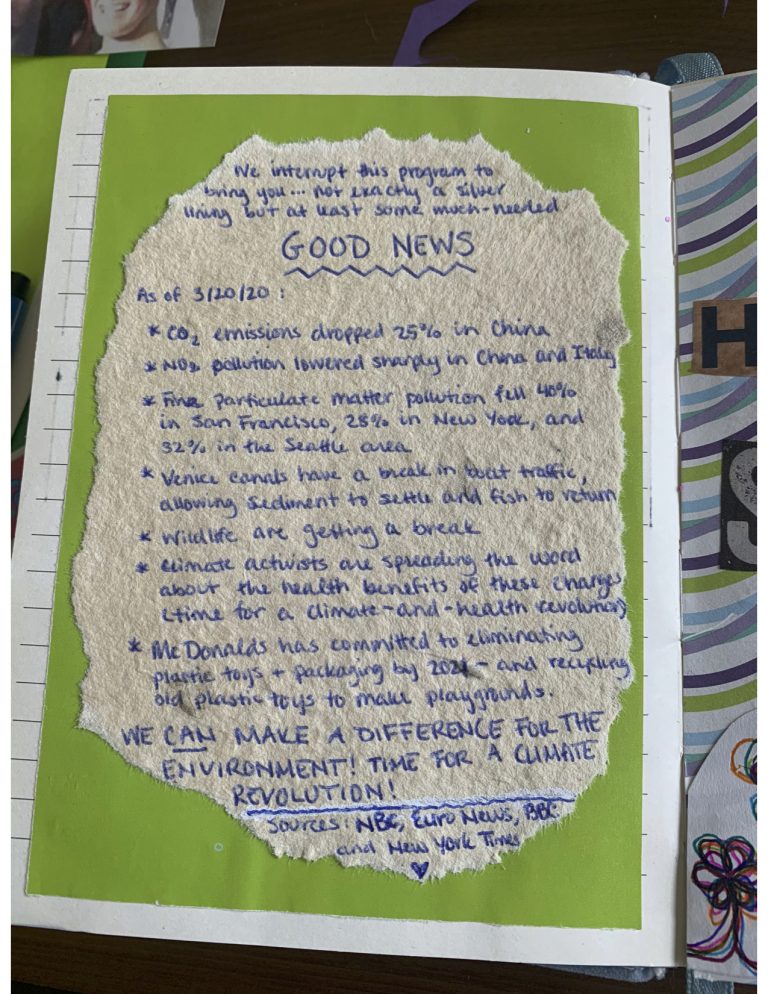 We interrupt this program to
bring you... not exactly a silver
lining but at least some much-needed
GOOD NEWS
As of 3/20/20 :
* CO₂ emissions dropped 25% in China
* NO₂ pollution lowered sharply in China and Italy
* Fine particulate matter pollution fell 40%
in San Francisco, 28% in New York, and
32% in the Seattle area
* Venice canals have a break in boat traffic,
allowing sediment to settle and fish to return
* Wildlife are getting a break
* Climate activists are spreading the word
about the health benefits of these changes
(time for a climate-and-health revolution)
* McDonalds has committed to eliminating
plastic toys + packaging by 2021 - and recycling
old plastic toys to make playgrounds.
WE CAN MAKE A DIFFERENCE FOR THE
ENVIRONMENT! TIME FOR A CLIMATE
REVOLUTION!
Sources: NBC, Euro News, BBC
and New York Times
H
S